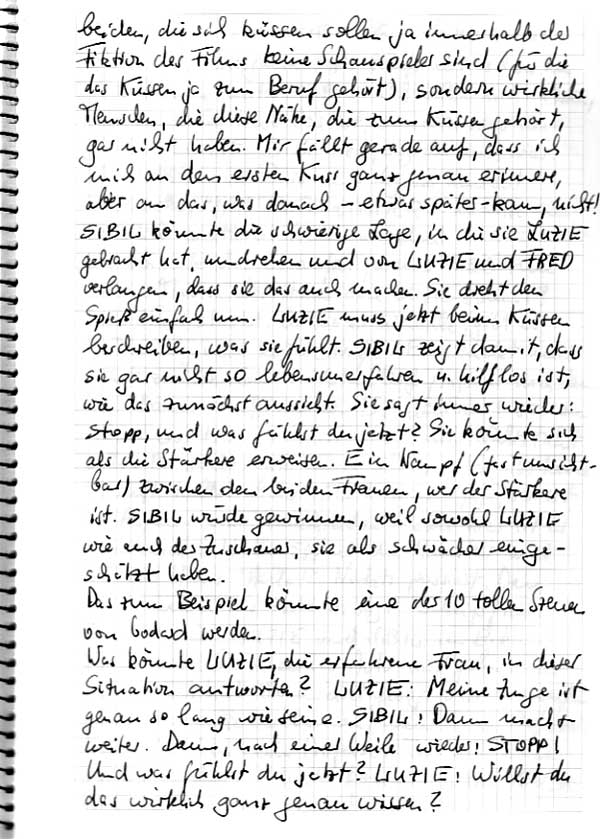 beiden, die sich küssen sollen ja innerhalb der
Fiktion des Films keine Schauspieler sind (für die
das Küssen ja zum Beruf gehört), sondern wirkliche
Menschen, die diese Nähe, die zum Küssen gehört,
gar nicht haben. Mir fällt gerade auf, dass ich
mich an den ersten Kuss ganz genau erinnere,
aber an das, was danach – etwas später – kam, nicht!
SIBIL könnte die schwierige Lage, in die sie LUZIE
gebracht hat, umdrehen und von LUZIE und FRED
verlangen, dass sie das auch machen. Sie dreht den
Spieß einfach um. LUZIE muss jetzt beim Küssen
beschreiben, was sie fühlt. SIBIL zeigt damit, dass
sie gar nicht so lebensunerfahren u. hilflos ist,
wie das zunächst aussieht. Sie sagt immer wieder:
Stopp, und was fühlst du jetzt? Sie könnte sich
als die Stärkere erweisen. Ein Kampf (fast unsicht-
bar) zwischen den beiden Frauen, wer der Stärkere
ist. SIBIL würde gewinnen, weil sowohl LUZIE
wie auch der Zuschauer, sie als schwächer einge-
schätzt haben.
Das zum Beispiel könnte eine der 10 tollen Szenen
von Godard werden.
Was könnte LUZIE, die erfahrene Frau, in dieser
Situation antworten? LUZIE: Meine Zunge ist
genau so lang wie seine. SIBIL: Dann macht
weiter. Dann, nach einer Weile wieder: STOPP!
Und was fühlst du jetzt? LUZIE: Willst du
das wirklich ganz genau wissen?